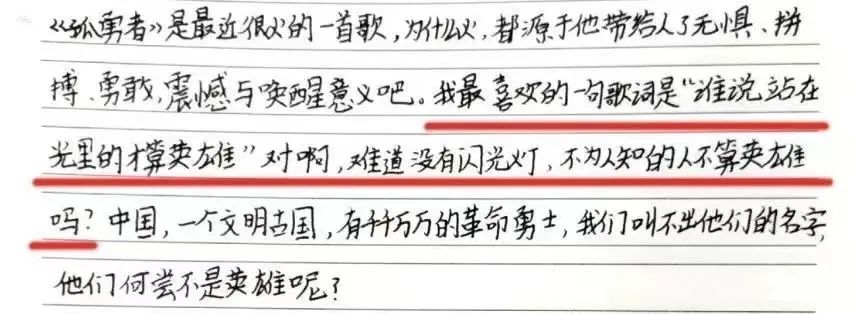 《孤勇者》是最近很火的一首歌，为什么火，都源于他带给人了无惧、拼
搏、勇敢，震憾与唤醒意义吧。我最喜欢的一句歌词是“谁说站在
光里的才算英雄”对啊，难道没有闪光灯，不为人知的人不算英雄
吗？中国，一个文明古国，有千千万万的革命勇士，我们叫不出他们的名字，
他们何尝不是英雄呢？